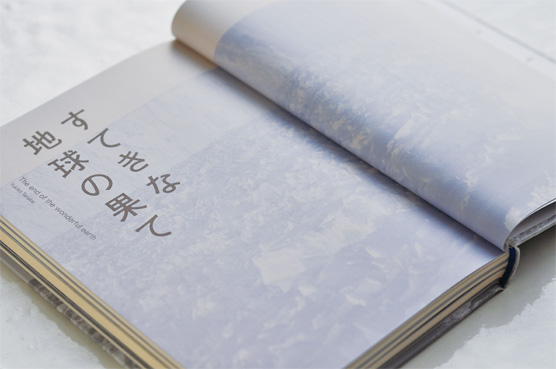 すてきな
地球の果て
The end of the wonderful earth